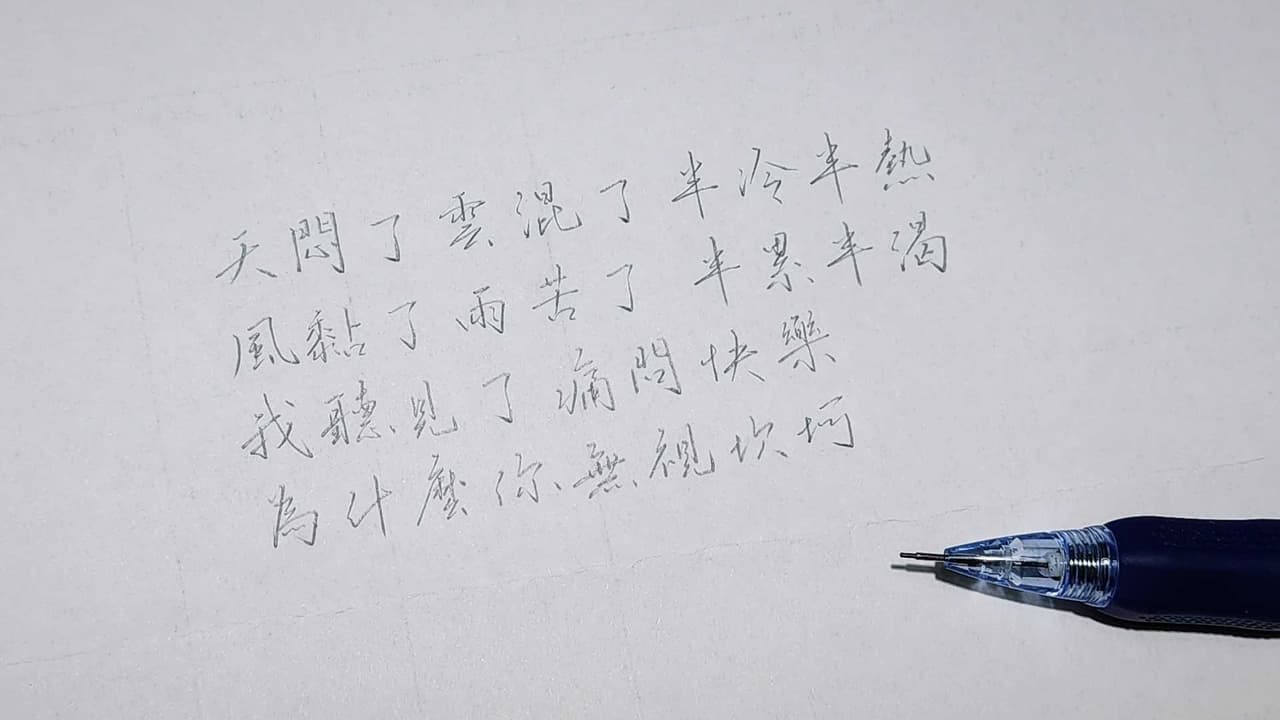 天悶了雲混了半冷半熱
風黏了雨苦了半累半渴
我聽見了痛問快樂
為什麼你無視坎坷